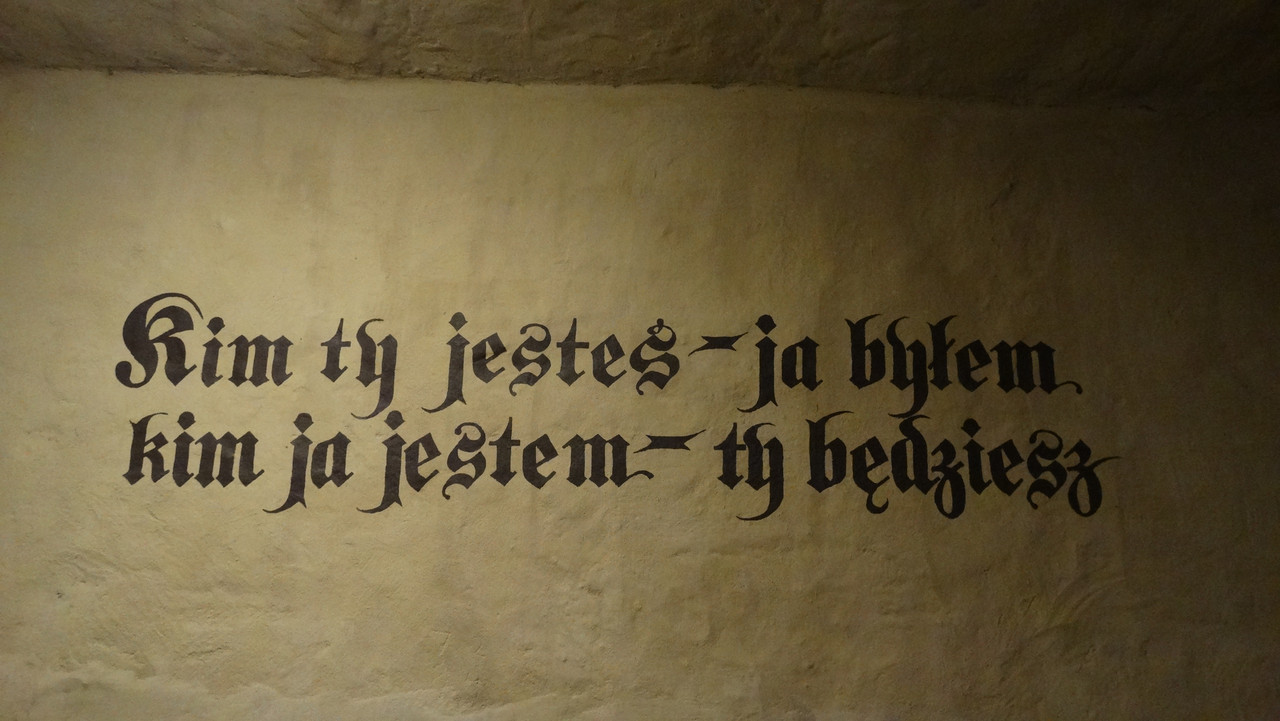 Kim ty jesteś - ja byłem
kim ja jestem - ty będziesz